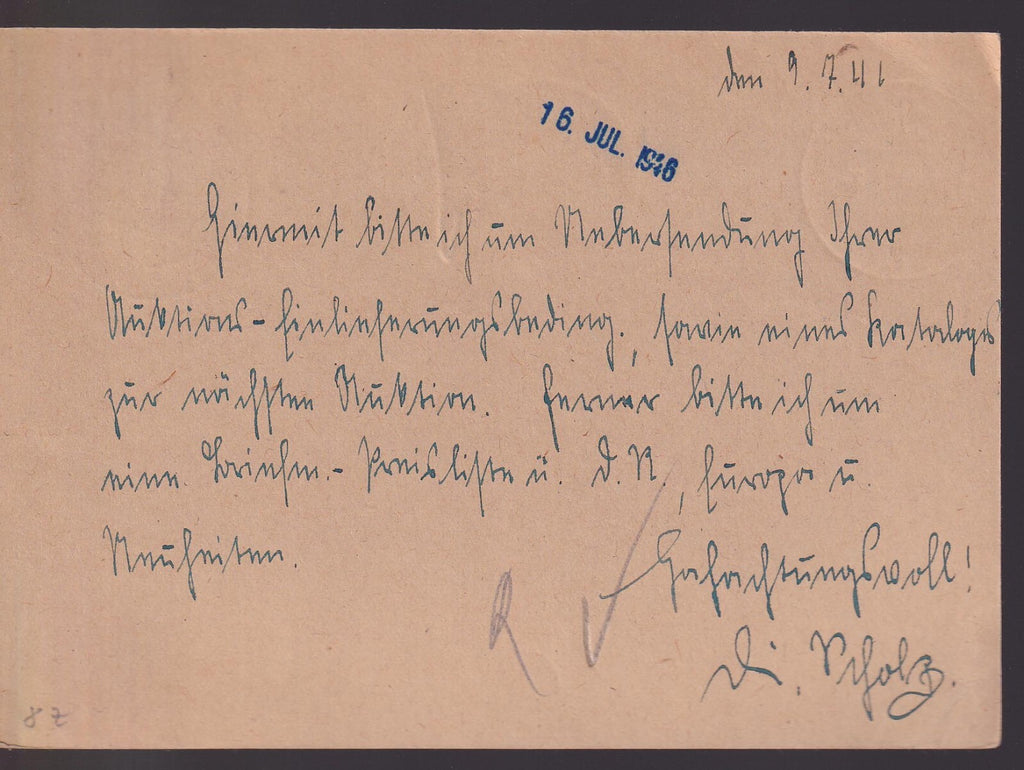 den 9. 7. 41
16. JUL. 1946
Hiermit bitte ich um Uebersendung Ihrer
Auktions-Einlieferungsbeding., sowie eines Kataloges
zur nächsten Auktion. Ferner bitte ich um
eine Briefm.-Preisliste ü. D.R., Europa u.
Neuheiten.
Hochachtungsvoll!
Scholz.
R
8 Z